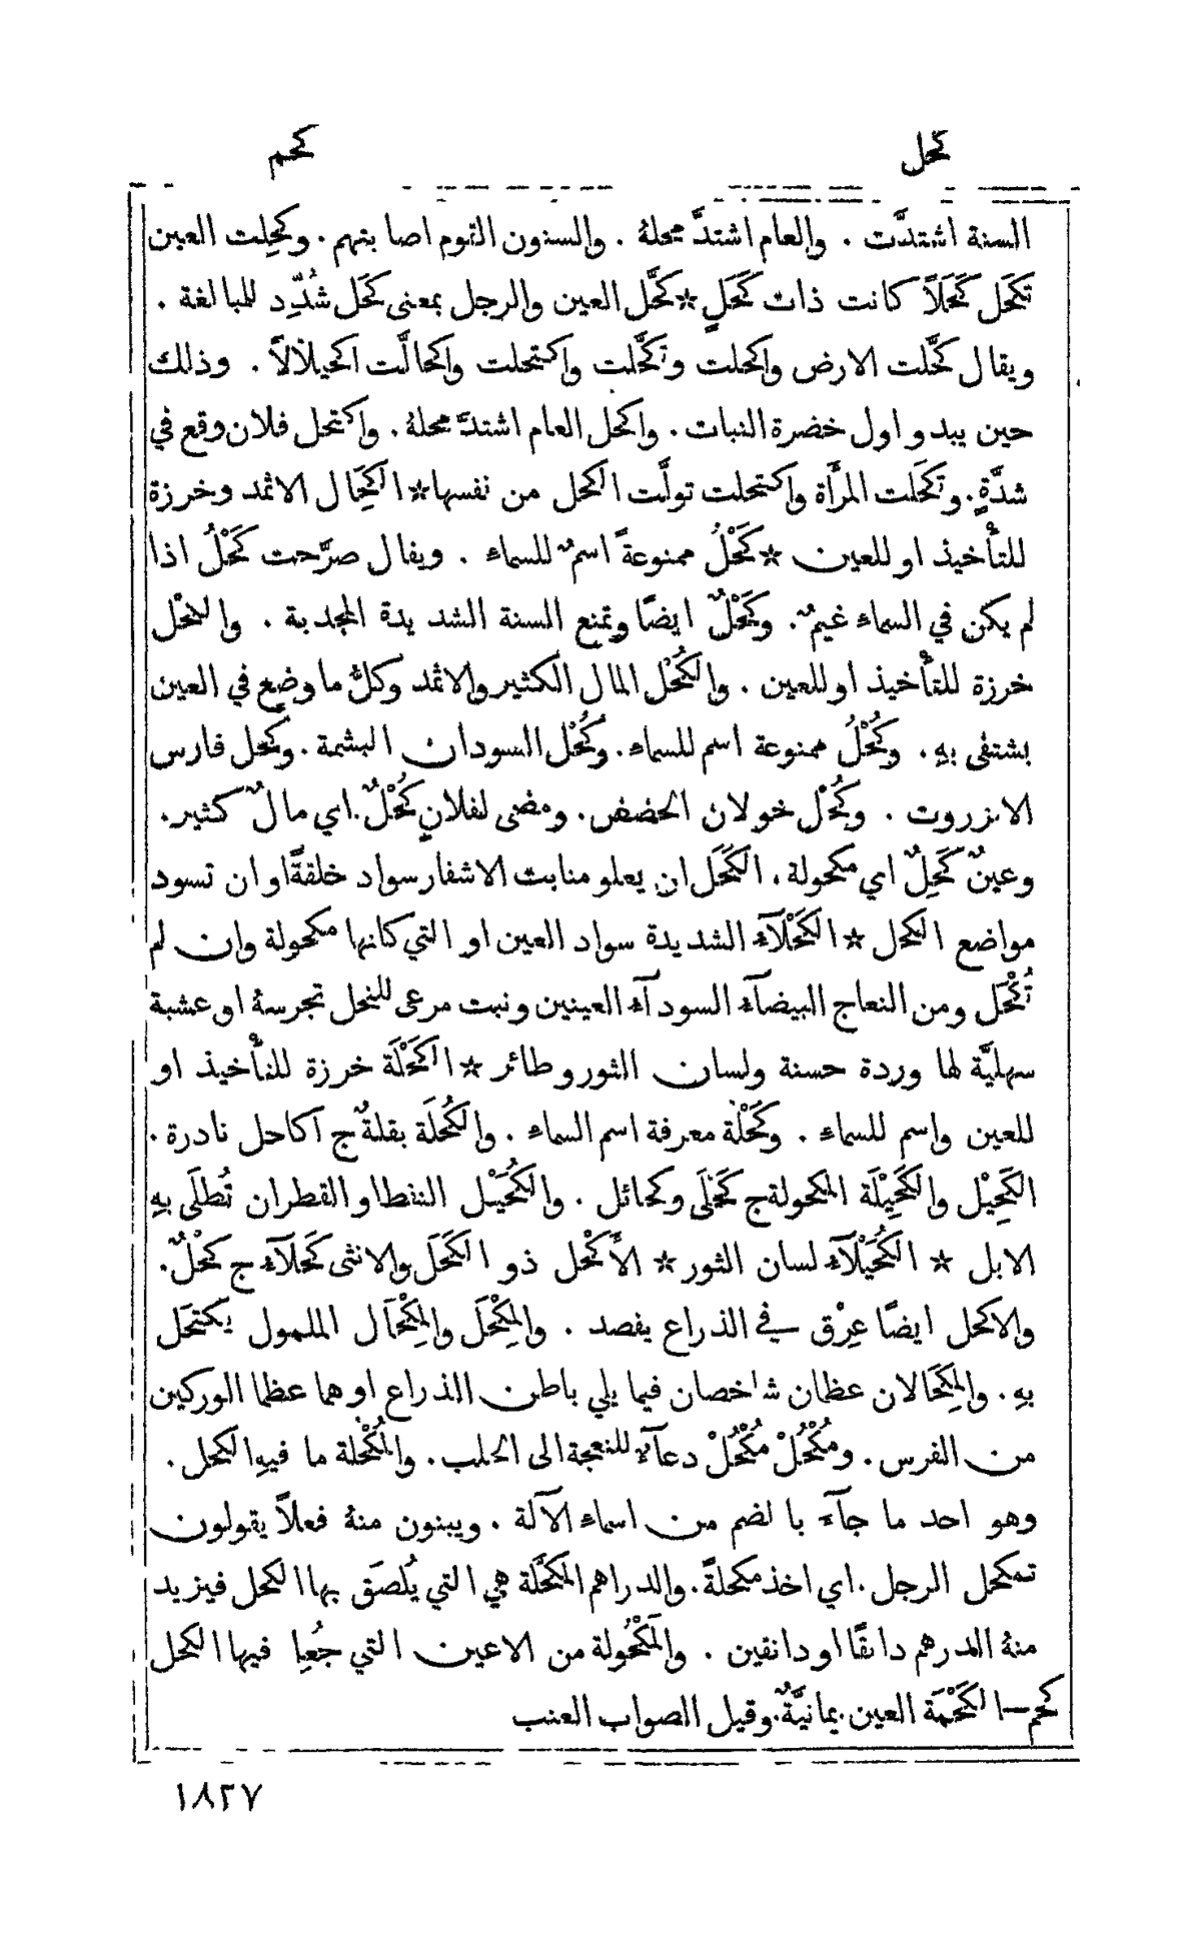 كحل كحم
السنة اشتدَّت . والعام اشتدَّ محلهُ . والسنون القوم اصابتهم . وكحِلت العين
تكحَل كَحَلاً كانت ذات كَحَلٍ * كحَّل العين والرجل بمعنى كحَل شُدِّد للمبالغة .
ويقال كحَّلت الارض واكحلت وتكحَّلت واكتحلت واكحالَّت اكحيلالاً . وذلك
حين يبدو اول خضرة النبات . واكحل العام اشتدَّ محلهُ . واكتحل فلان وقع في
شدَّةٍ . وتكحَلت المرأَة واكتحلت تولَّت الكحل من نفسها * الكِحَال الاثمد وخرزة
للتأْخيذ او للعين * كَحْلُ ممنوعةً اسمٌ للسماء . ويقال صرَّحت كَحْلُ اذا
لم يكن في السماء غيمٌ . وكَحْلٌ ايضًا وتمنع السنة الشديدة المجدبة . والكحْل
خرزة للتأْخيذ او للعين . والكُحْل المال الكثير والاثمد وكلُّ ما وضع في العين
يشتفى بهِ . وكُحْلُ ممنوعة اسم للسماء . وكُحْل السودان البشمة . وكحل فارس
الانزروت . وكُحْل خولان الحضض . ومضى لفلانٍ كُحْلٌ . اي مالٌ كثير .
وعينٌ كَحِلٌ اي مكحولة . الكَحَل ان يعلو منابت الاشفار سواد خلقةً او ان تسود
مواضع الكحل * الكَحْلَآء الشديدة سواد العين او التي كانها مكحولة وان لم
تُكْحَل ومن النعاج البيضآء السودآء العينين ونبت مرعى للنحل تجرسهُ او عشبة
سهليَّة لها وردة حسنة ولسان الثور وطائر * الكَحْلَة خرزة للتأْخيذ او
للعين واسم للسماء . وكَحْلَة معرفة اسم السماء . والكُحلَة بقلةٌ ج اكاحل نادرة .
الكَحِيْل والكَحِيْلَة المكحولة ج كَحْلَى وكحائل . والكُحَيْل النفط او القطران تُطلَى بهِ
الابل * الكُحَيْلَآء لسان الثور * الأَكْحل ذو الكَحَل والانثى كَحلَآء ج كحْلٌ .
والاكحل ايضًا عِرْق في الذراع يفصد . والمِكْحَل والمِكْحَال الملمول يكتحَل
بهِ . والمِكحَالان عظمان شاخصان فيما يلي باطن الذراع او هما عظما الوركين
من الفرس . ومُكْحُلْ مُكْحُلْ دعآء للنعجة الى الحلب . والمُكْحُلة ما فيهِ الكحل .
وهو احد ما جآء بالضم من اسماء الآلة . ويبنون منهُ فعلاً يقولون
تمكحل الرجل . اي اخذ مكحلةً . والدراهم المكحَّلة هي التي يُلصَق بها الكحل فيزيد
منهُ الدرهم دانقًا او دانقين . والمَكْحُولة من الاعين التي جُعِل فيها الكحل
كحم — الكَحْمَة العين . يمانيَّةٌ . وقيل الصواب العنب
١٨٢٧